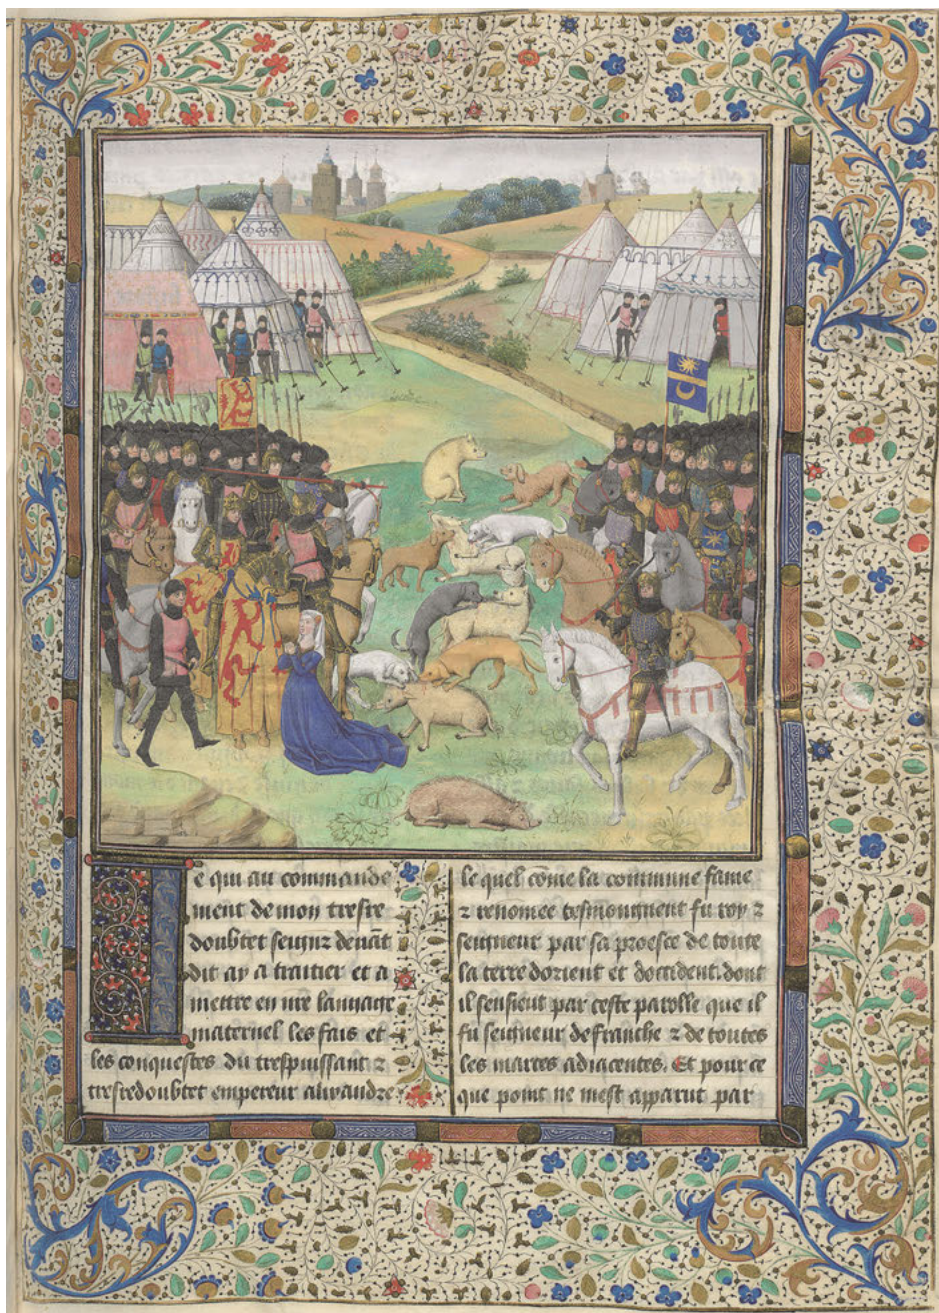 Ie qui au commande
ment de mon tresre
doubtet seignr deuāt
dit ay a traitier et a
mettre en nre lanuaige
maternel les fais et
les conquestes du trespuissant ⁊
tresredoubtet empereur alixandre
le quel cōme la commune fame
⁊ renomee tesmoingnent fu roy ⁊
seigneur par sa proesce de toute
la terre dorient et doccident. dont
il sensieut par ceste parolle que il
fu seigneur de franche ⁊ de toutes
les marces adiacentes. Et pour ce
que point ne mest apparut par